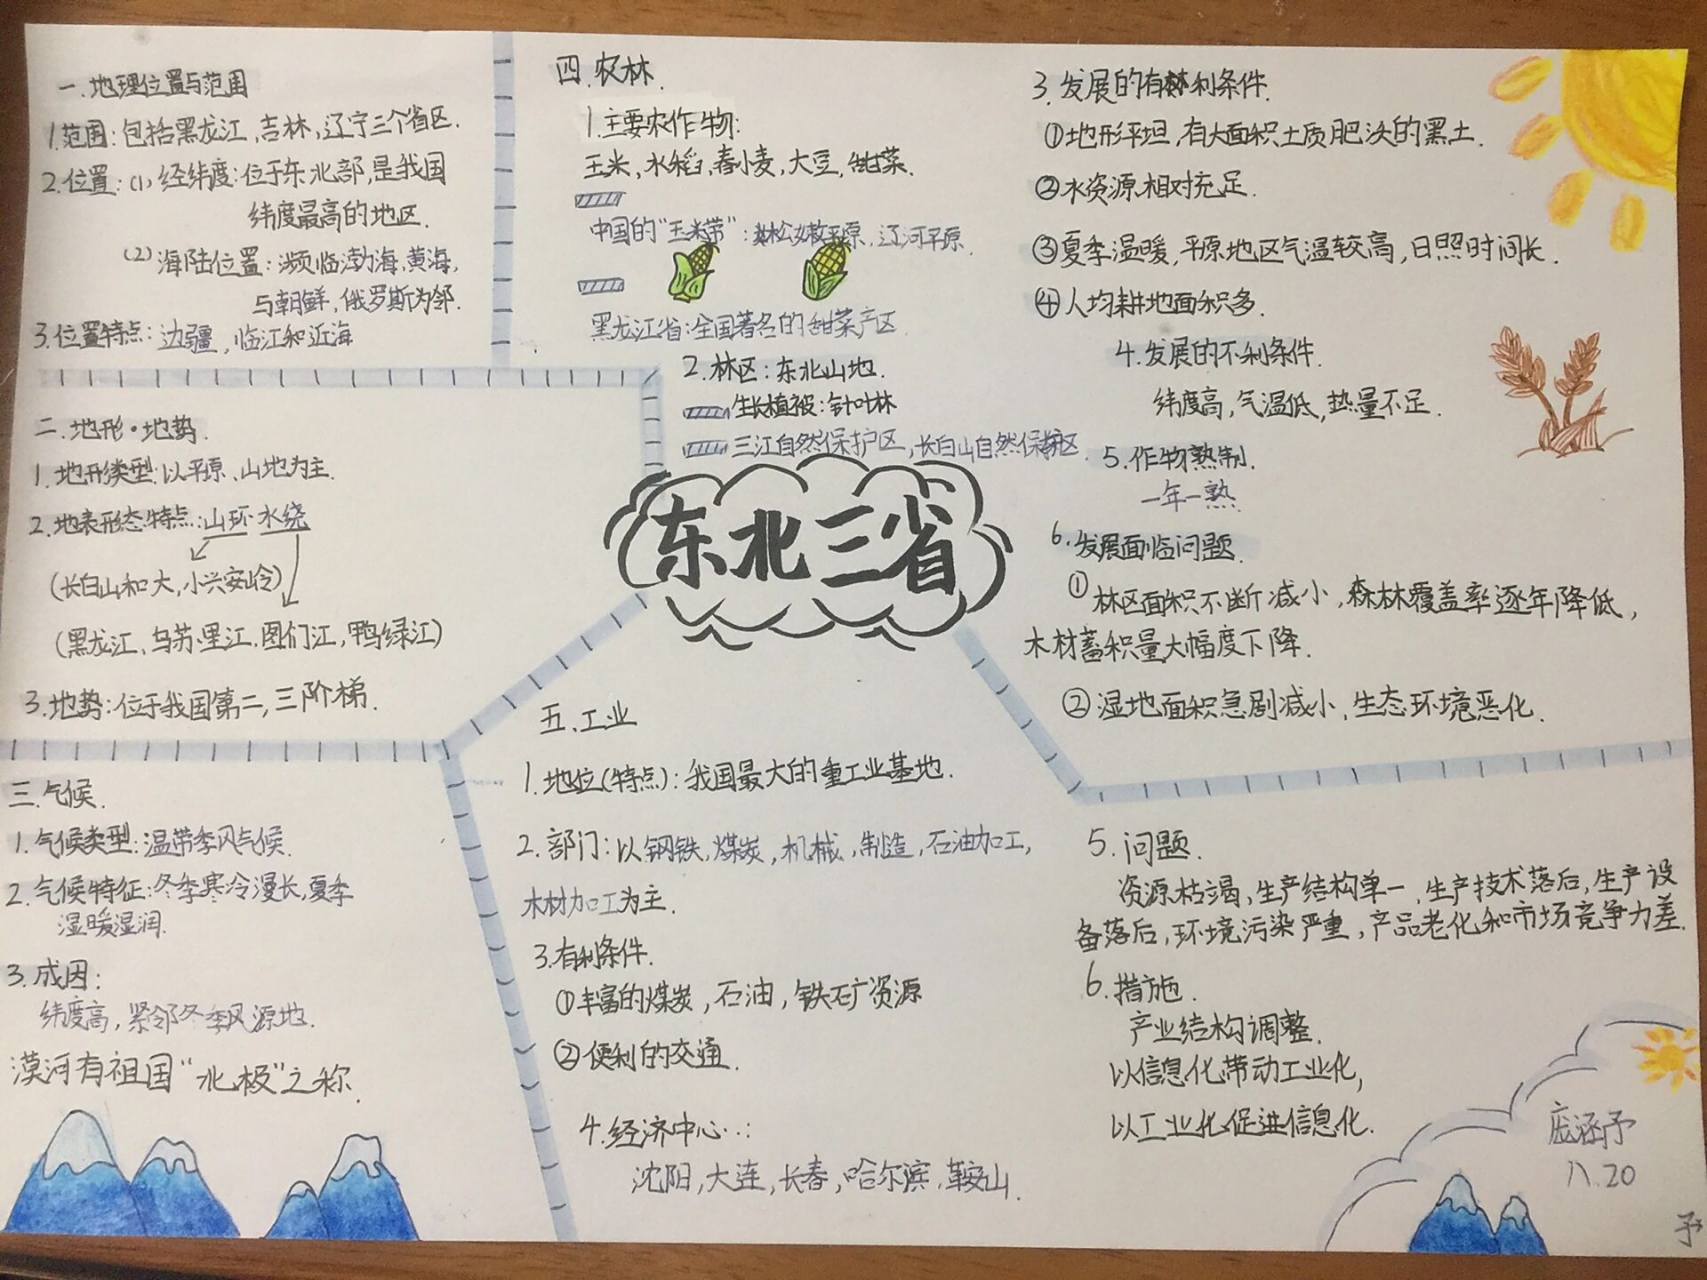 一.地理位置与范围
1.范围:包括黑龙江,吉林,辽宁三个省区.
2.位置:(1)经纬度:位于东北部,是我国
纬度最高的地区.
(2)海陆位置:濒临渤海,黄海,
与朝鲜,俄罗斯为邻.
3.位置特点:边疆,临江和近海
二.地形·地势.
1.地形类型:以平原、山地为主.
2.地表形态特点:山环水绕
(长白山和大,小兴安岭)
(黑龙江、乌苏里江.图们江,鸭绿江)
3.地势:位于我国第二,三阶梯.
三.气候.
1.气候类型:温带季风气候.
2.气候特征:冬季寒冷漫长,夏季
温暖湿润.
3.成因:
纬度高,紧邻冬季风源地.
漠河有祖国“北极”之称.
四.农林.
1.主要农作物:
玉米,水稻,春小麦,大豆,甜菜.
中国的“玉米带”:松嫩平原,辽河平原.
黑龙江省:全国著名的甜菜产区.
2.林区:东北山地.
生长植被:针叶林
三江自然保护区,长白山自然保护区.
东北三省
3.发展的有利条件.
①地形平坦,有大面积土质肥沃的黑土.
②水资源相对充足.
③夏季温暖,平原地区气温较高,日照时间长.
④人均耕地面积多.
4.发展的不利条件.
纬度高,气温低,热量不足.
5.作物熟制.
一年一熟.
6.发展面临问题.
①林区面积不断减小,森林覆盖率逐年降低,
木材蓄积量大幅度下降.
②湿地面积急剧减小,生态环境恶化.
五.工业
1.地位(特点):我国最大的重工业基地.
2.部门:以钢铁,煤炭,机械,制造,石油加工,
木材加工为主.
3.有利条件.
①丰富的煤炭,石油,铁矿资源
②便利的交通.
4.经济中心:
沈阳,大连,长春,哈尔滨,鞍山.
5.问题.
资源枯竭,生产结构单一,生产技术落后,生产设
备落后,环境污染严重,产品老化和市场竞争力差.
6.措施.
产业结构调整.
以信息化带动工业化,
以工业化促进信息化.
八.20
予